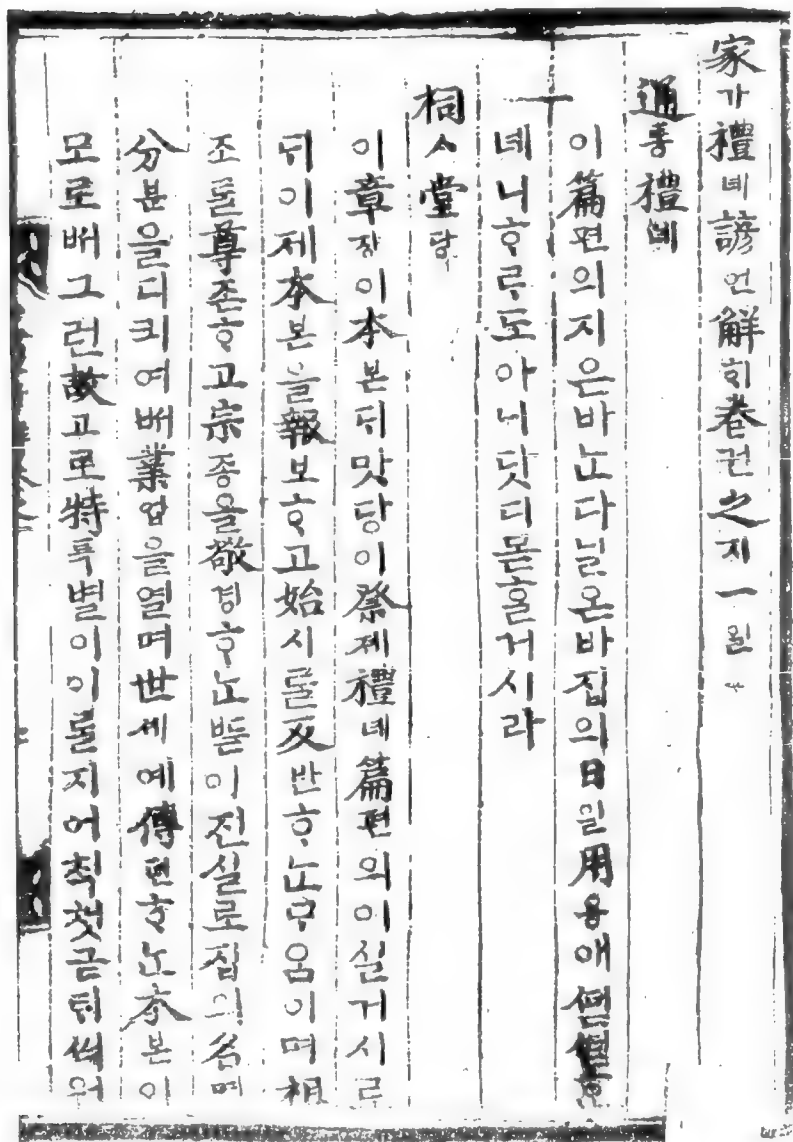 家가禮녜諺언解ᄒᆡ卷권之지一일
通통禮녜
이篇편의지은바ᄂᆞᆫ다닐온바집의日일用용애덛덛ᄒᆞᆫ
녜니ᄒᆞᄅᆞ도아니닷디몯ᄒᆞᆯ거시라
祠ᄉᆞ堂당
이章쟝이本본ᄃᆡ맛당이祭졔禮녜篇편의이실거시로
ᄃᆡ이제本본을報보ᄒᆞ고始시ᄅᆞᆯ反반ᄒᆞᄂᆞᆫᄆᆞ음이며祖
조ᄅᆞᆯ尊존ᄒᆞ고宗종을敬경ᄒᆞᄂᆞᆫᄠᅳᆮ이진실로집의名명
分분을디킈여ᄡᅥ業업을열며世셰예傳뎐ᄒᆞᄂᆞᆫ本본이
모로ᄡᅥ그런故고로特특별이이ᄅᆞᆯ지어칙첫귿ᄐᆡ